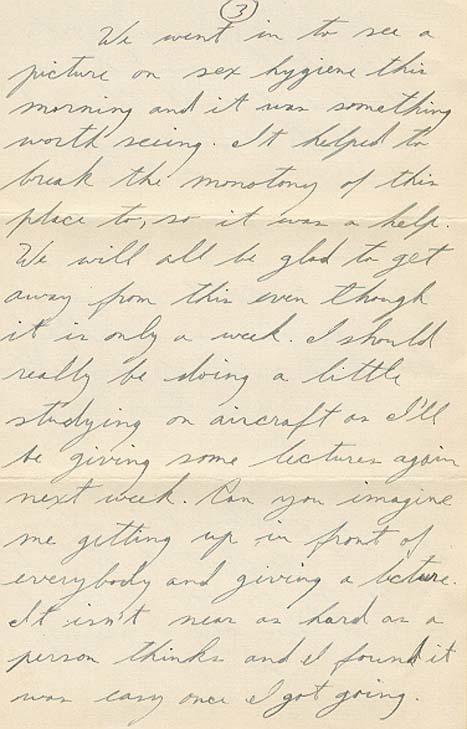 3
We went in to see a
picture on sex hygiene this
morning and it was something
worth seeing. It helped to
break the monotony of this
place to, so it was a help.
We will all be glad to get
away from this even though
it is only a week. I should
really be doing a little
studying on aircraft as I'll
be giving some lectures again
next week. Can you imagine
me getting up in front of
everybody and giving a lecture.
It isn't near as hard as a
person thinks and I found it
was easy once I got going.